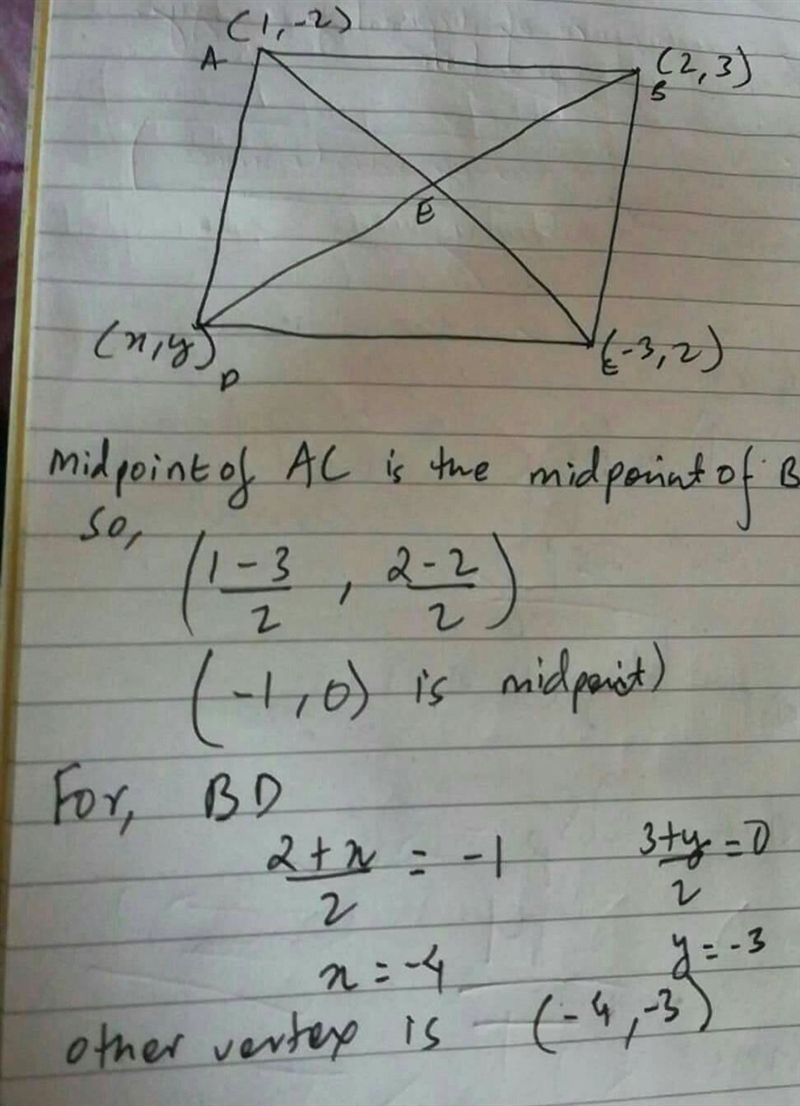 (1,-2)
A
(2,3)
B
E
(x,y)
D
(-3,2)
midpoint of AC is the midpoint of B
so,
(1-3/2 , 2-2/2)
(-1,0) is midpoint)
For, BD
2+x/2 = -1    3+y/2 = 0
x = -4    y = -3
other vertex is (-4,-3)